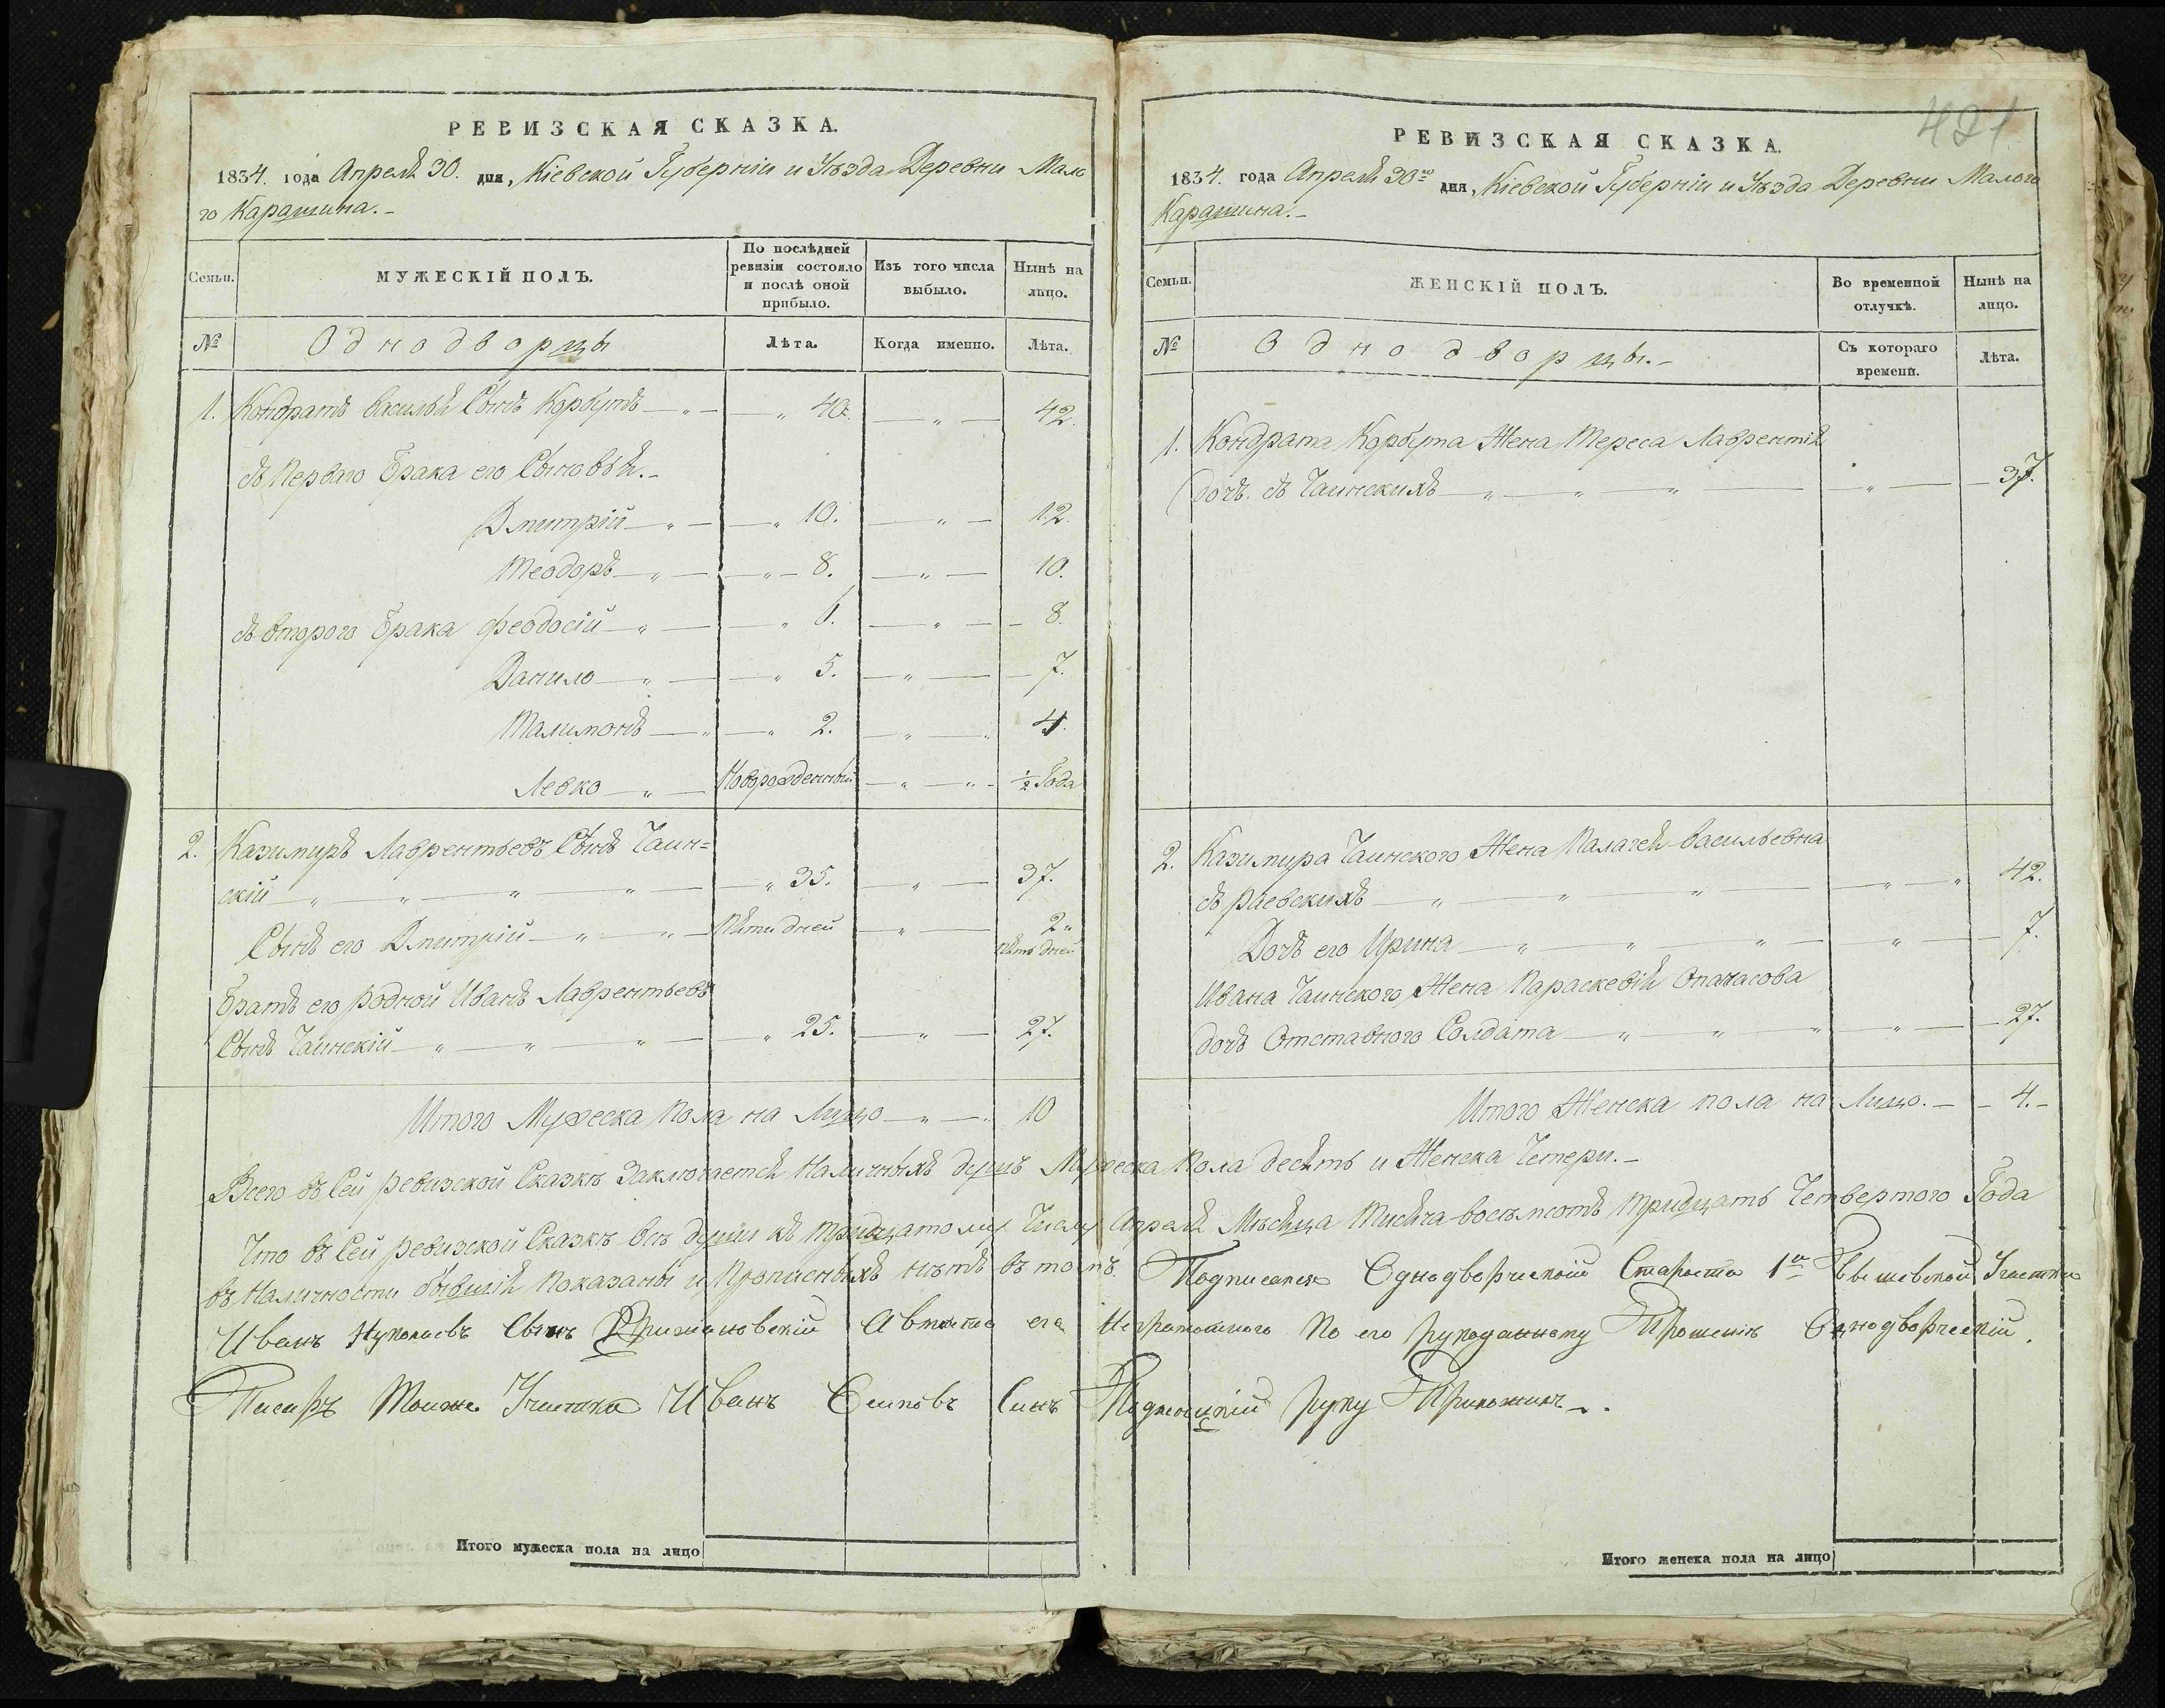 РЕВИЗСКАЯ СКАЗКА.
1834. года Апреля 30. дня, Кіевской Губерніи и Уѣзда Деревни Мало
го Карашина.-
Семьи.
МУЖЕСКІЙ ПОЛЪ.
По послѣдней ревизіи состояло и послѣ оной прибыло.
Изъ того числа выбыло.
Нынѣ на лицо.
№
Однодворцы
Лѣта.
Когда именно.
Лѣта.
1. Кондратъ Васильѣ Сынъ Корбутъ 40. 42.
съ Перваго Брака его Сыновья.-
Дмитрій 10. 12.
Теодоръ 8. 10.
съ второго Брака Феодосій 6. 8.
Данило 5. 7.
Малимонъ 2. 4.
Левко Новорожденный ½ Года
2. Казимиръ Лаврентьевъ Сынъ Чаин=
скій 35. 37.
Сынъ его Дмитрій Пяти дней 2 Пять дней
Братъ его родной Иванъ Лаврентьевъ
Сынъ Чаинскій 25. 27.
Итого Мужеска Пола на Лицо 10
421
РЕВИЗСКАЯ СКАЗКА.
1834. года Апреля 30го дня, Кіевской Губерніи и Уѣзда Деревни Малого
Карашина.-
Семьи.
ЖЕНСКІЙ ПОЛЪ.
Во временной отлучкѣ.
Нынѣ на лицо.
№
Однодворцы.-
Съ котораго времени.
Лѣта.
1. Кондрата Корбута Жена Тереса Лаврентія
дочь. съ Чаинскихъ 37.
2. Казимира Чаинского Жена Палагея Васильевна
съ раевскихъ 42.
Дочь его Ирина 7.
Ивана Чаинского Жена Параскевія Опанасова
дочь Отставного Солдата 27.
Итого Женска пола на Лицо.- 4.-
Всего въ Сей ревизской Сказкѣ Заключается Наличныхъ душъ Мужеска Пола десять и Женска Четери.-
Что въ Сей ревизской Сказкѣ всѣ души къ тридцатому Числу Апреля Мѣсяца Тисяча восѣмсотъ тридцать Четвертого Года
въ Наличности бывшія показаны и Прописныхъ нѣтъ въ томъ. Подписался Однодворческій Староста 1го Участка
Иванъ Николаевъ Сынъ А вместо его Неграмотного По его рукоданному Прошенію Однодворческій
Писарь Тоиже Участка Иванъ Осиповъ Синъ руку Приложилъ.
Итого мужеска пола на лицо
Итого женска пола на лицо